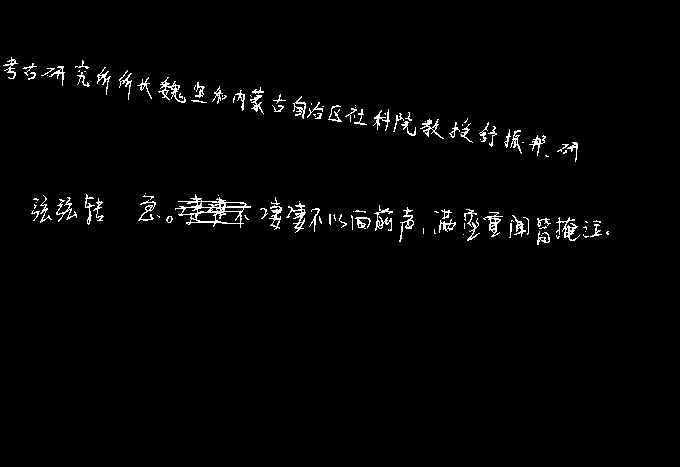 考古研究所所长魏坚和内蒙古自治区社科院教授舒振邦、研
弦弦转 急。凄凄不以向前声,满座重闻皆掩泣.